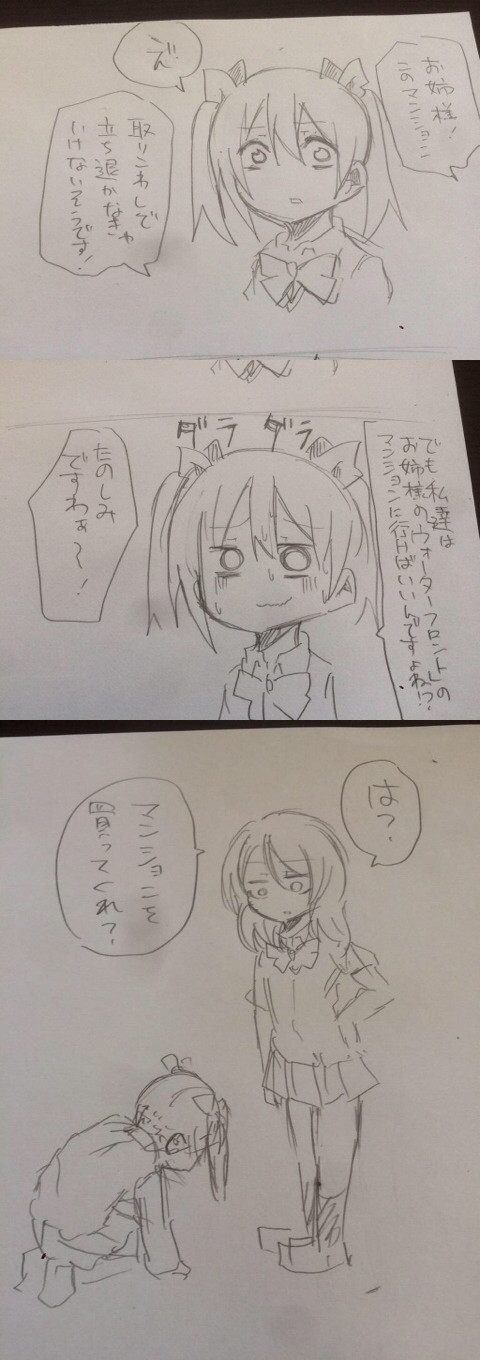 お姉様！
このマンション
え゙
取りこわしで
立ち退かなきゃ
いけないそうです！
でも私達は
お姉様のウォーターフロントの
マンションに行けばいいんですよね！？
ダラダラ
たのしみ
ですわぁ〜！
は？
マンションを
買ってくれ？